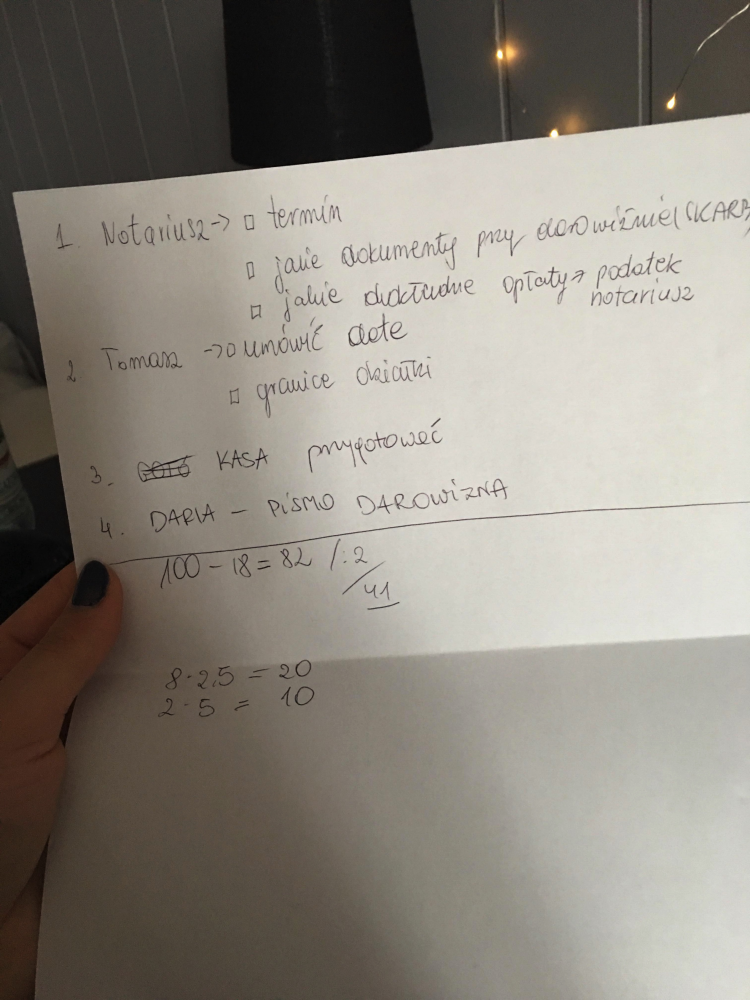 1. Notariusz → □ termin
□ jakie dokumenty przy darowiźnie (SKARB)
□ jakie dokładne opłaty → podatek
notariusz
2 Tomasz → □ umówić date
□ granice działki
3. KASA przygotować
4. DARIA – PISMO DAROWIZNA
100 - 18 = 82 /:2
41
8·2,5 = 20
2·5 = 10